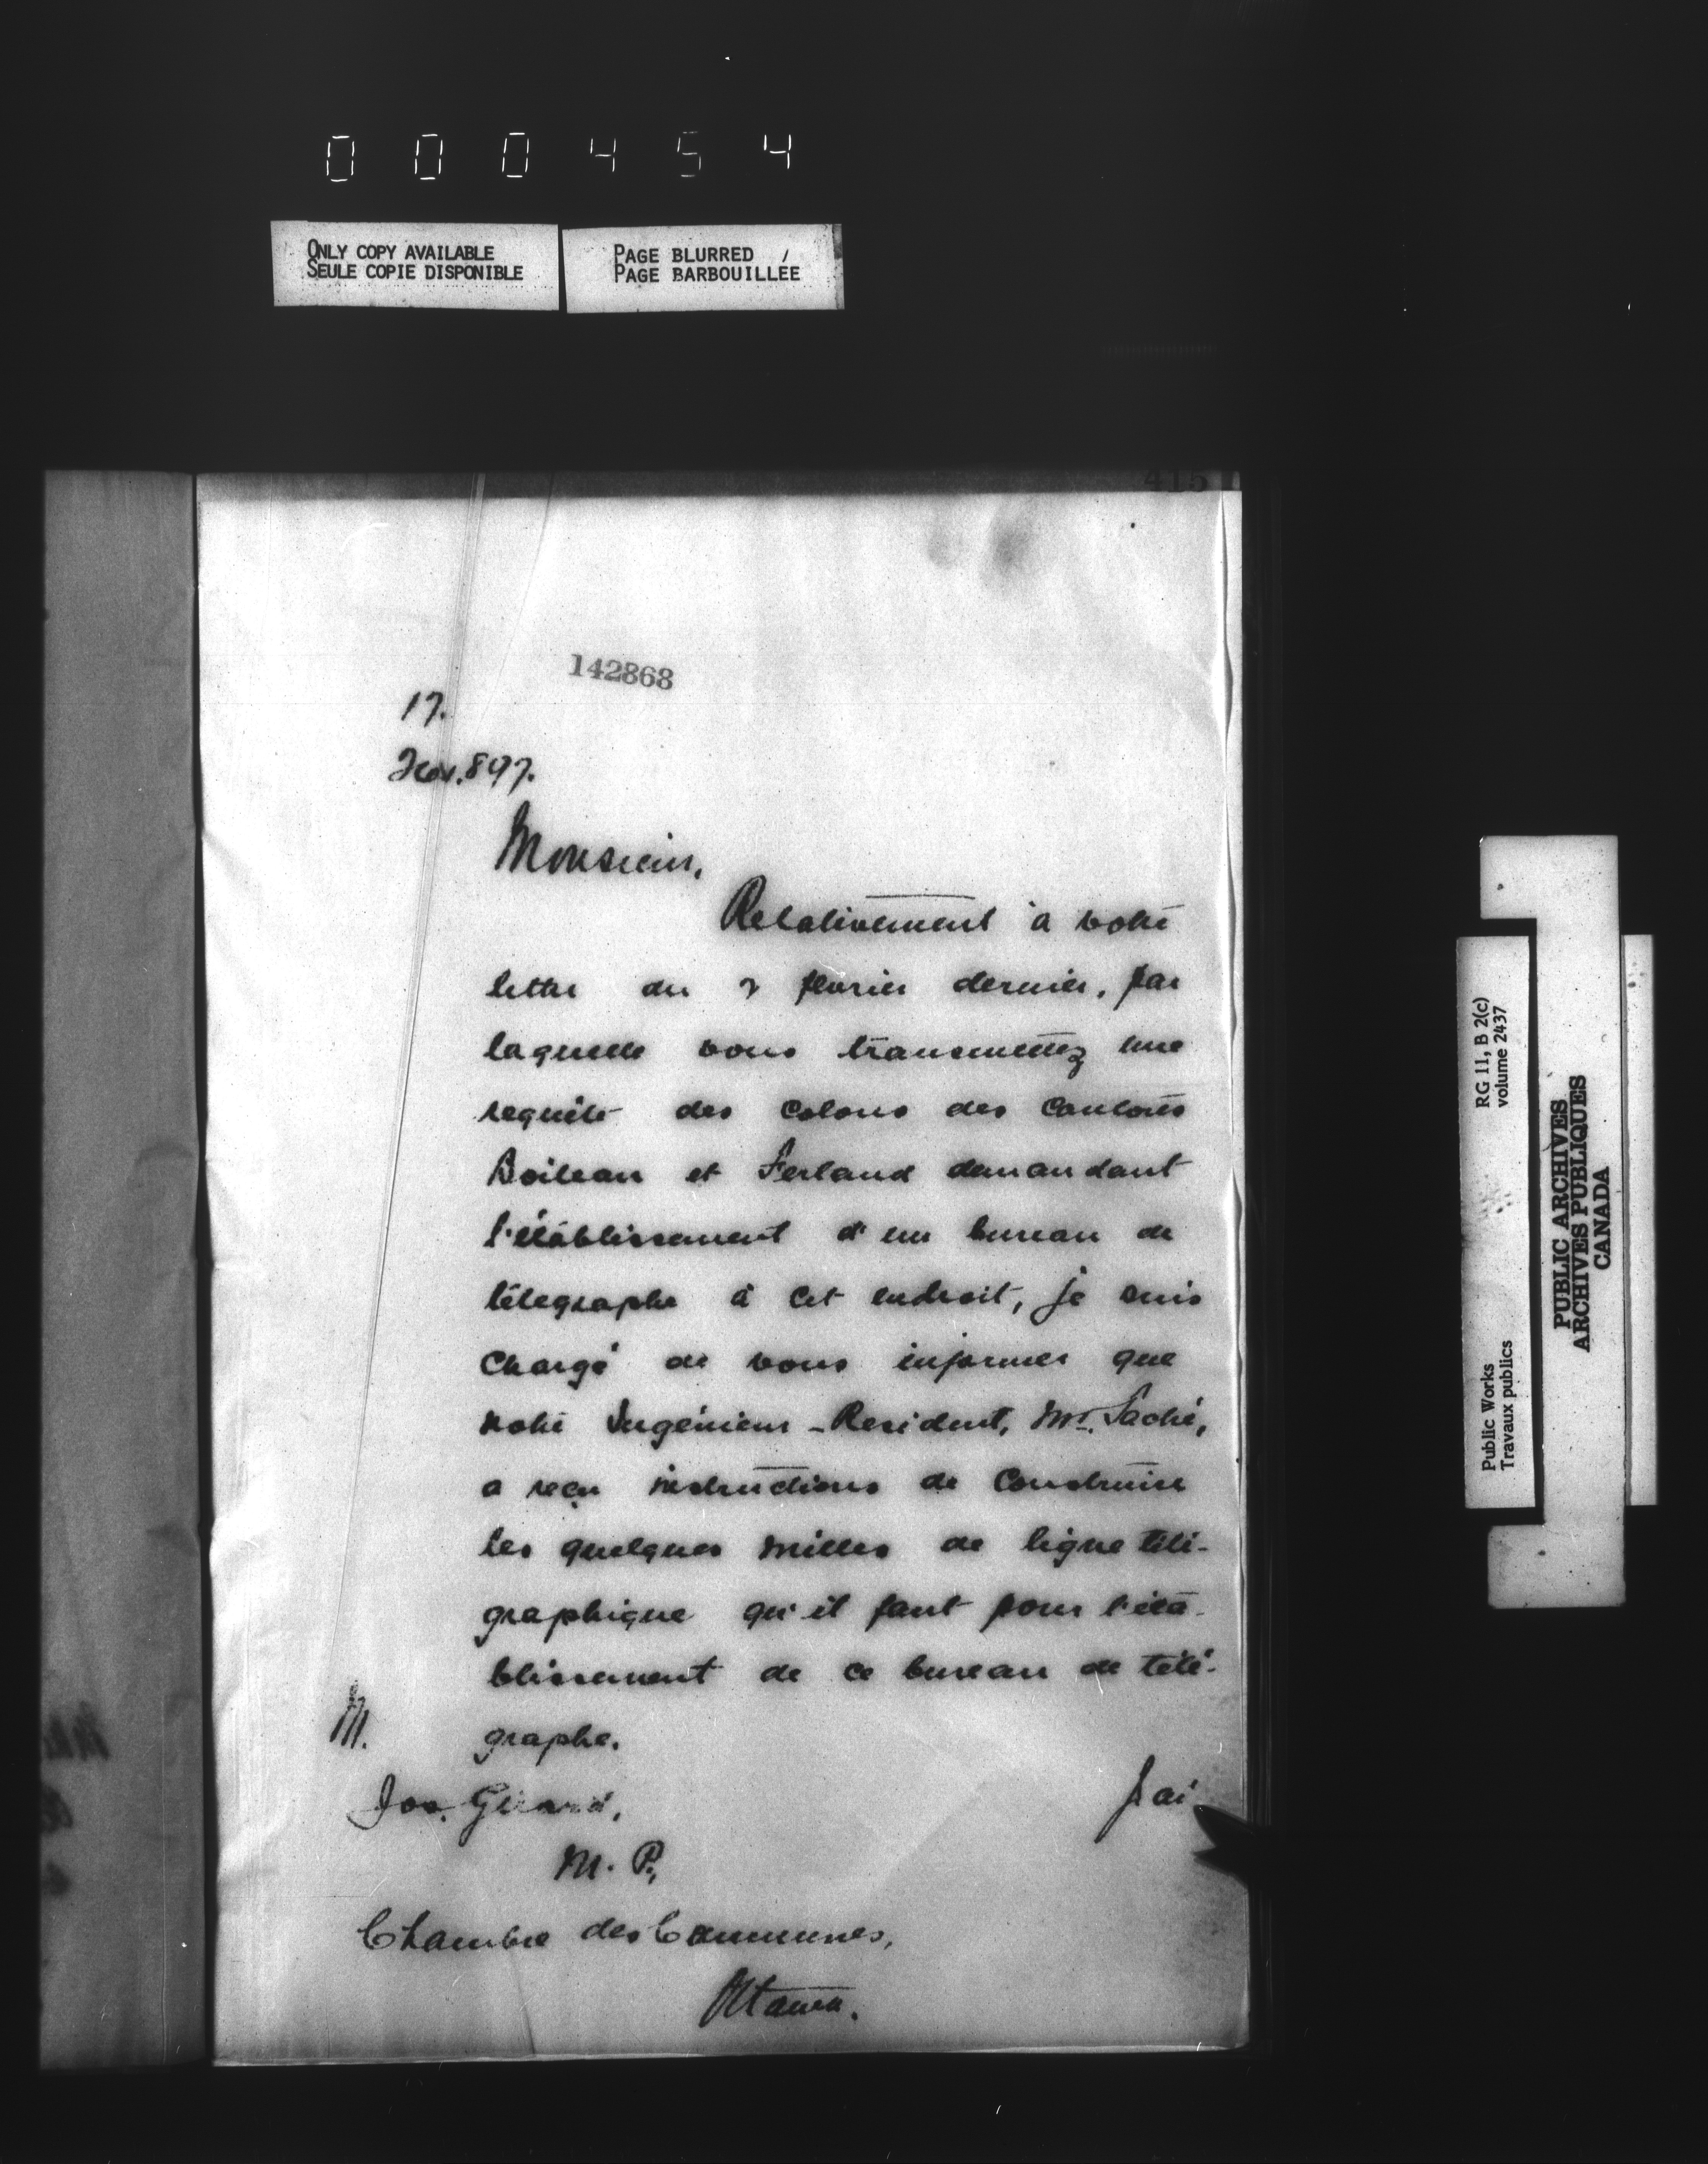 000454
ONLY COPY AVAILABLE
SEULE COPIE DISPONIBLE
PAGE BLURRED /
PAGE BARBOUILLEE
415
142868
17.
Nov. 897.
Monsieur,
Relativement à votre
lettre du février dernier, par
laquelle vous transmettez une
requête des colons des cantons
Boileau et Ferland demandant
l'établissement d'un bureau de
télégraphe à cet endroit, je suis
chargé de vous informer que
notre Ingénieur-Resident, Mr.
a reçu instructions de construire
les quelques milles de ligne télé-
graphique qu'il faut pour l'éta-
blissement de ce bureau de télé-
graphe.
M.
Jos. Girard,
J'ai
M. P.,
Chambre des Communes,
Ottawa.
RG 11, B 2(c)
volume 2437
Public Works
Travaux publics
PUBLIC ARCHIVES
ARCHIVES PUBLIQUES
CANADA